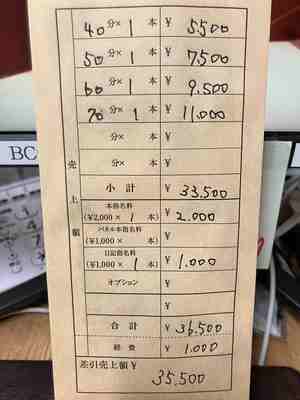 40分× 1 本 ¥ 5.500
50分× 1 本 ¥ 7.500
60分× 1 本 ¥ 9.500
70分× 1 本 ¥ 11.000
分× 本 ¥
分× 本 ¥
売上額
小計 ¥ 33.500
本指名料
(¥2,000× 1 本) ¥ 2.000
パネル本指名料
(¥1,000× 本) ¥
日記指名料
(¥1,000× 1 本) ¥ 1.000
オプション ¥
¥
合計 ¥ 36.500
経費 ¥ 1.000
差引売上額 ¥
35.500
BC